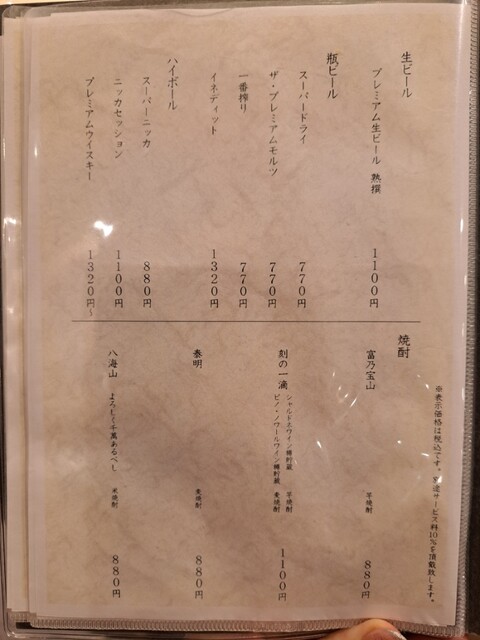 生ビール
プレミアム生ビール 熟撰 1100円
瓶ビール
スーパードライ 770円
ザ・プレミアムモルツ 770円
一番搾り 770円
イネディット 1320円
ハイボール
スーパーニッカ 880円
ニッカセッション 1100円
プレミアムウイスキー 1320円~
※表示価格は税込です。別途サービス料10%を頂戴致します。
焼酎
富乃宝山 芋焼酎 880円
刻の一滴 シャルドネワイン樽貯蔵 芋焼酎
ピノ・ノワールワイン樽貯蔵 麦焼酎 1100円
泰明 麦焼酎 880円
八海山 よろしく千萬あるべし 米焼酎 880円